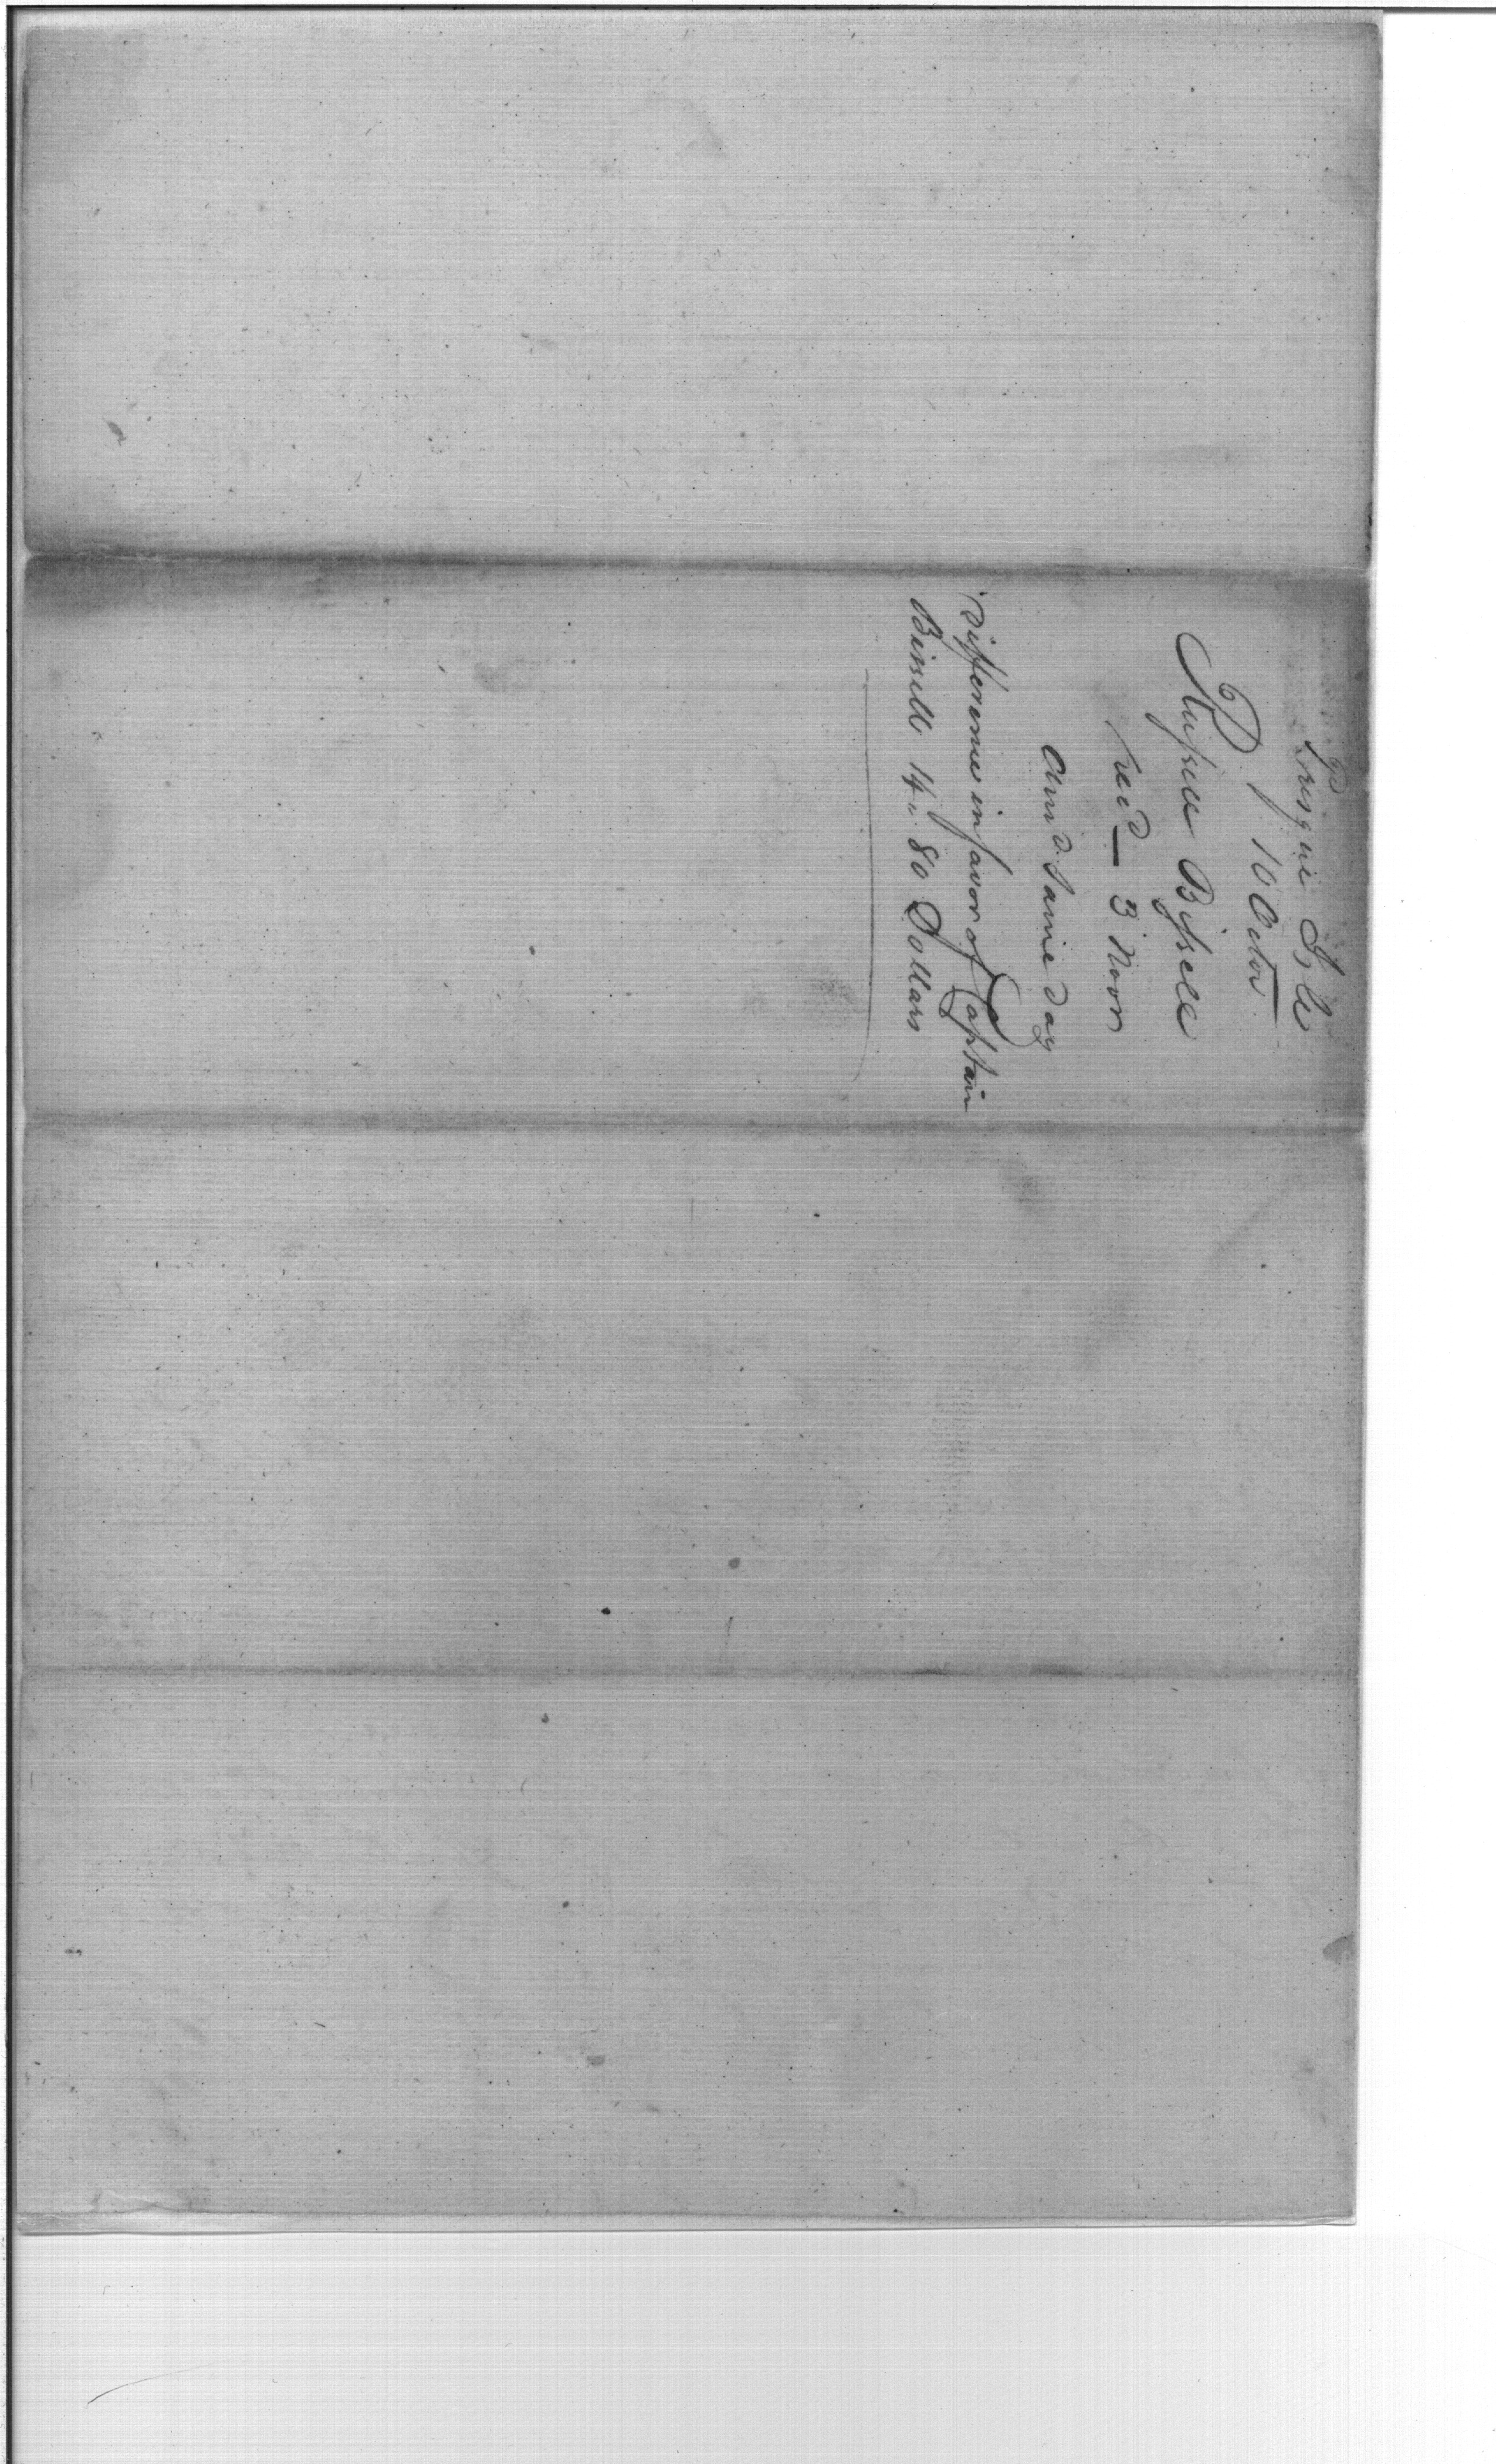 Presque Isle
10 Octor
Russell Bissell
recd — 3 Novr
Answd Same day
difference in favor of Captain
Bissell 14.. 80 Dollars